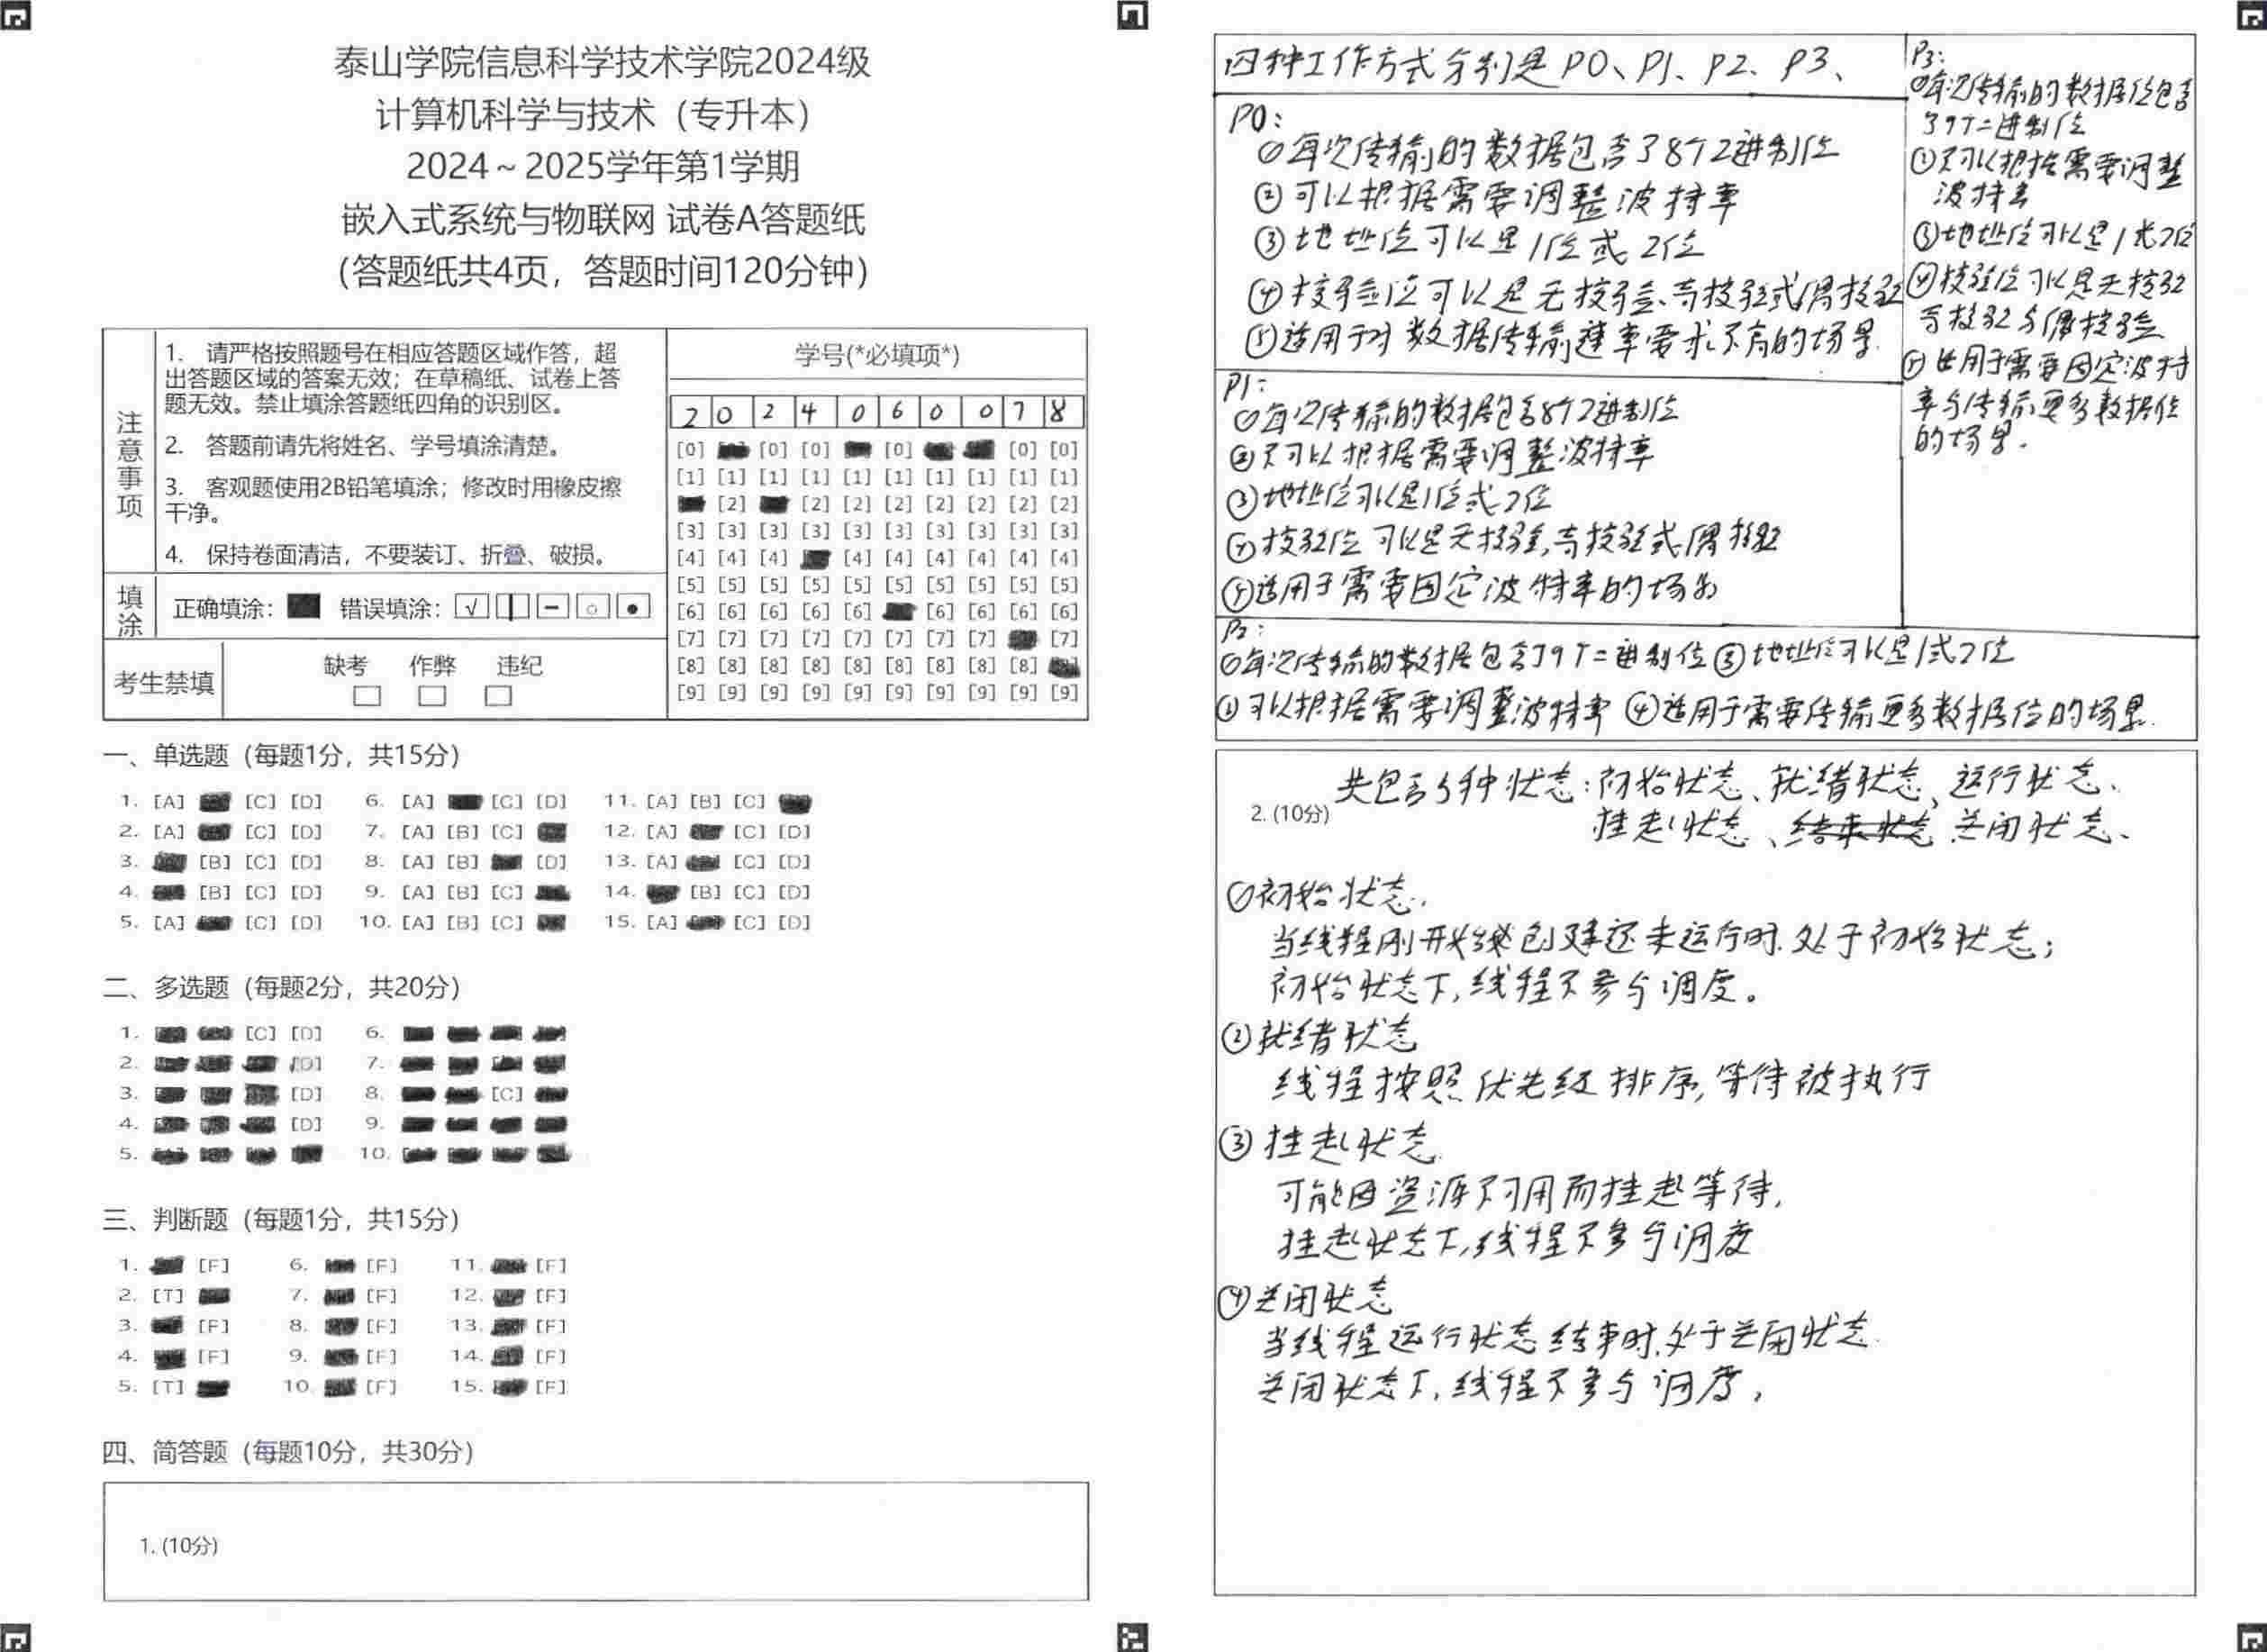 泰山学院信息科学技术学院2024级
计算机科学与技术（专升本）
2024～2025学年第1学期
嵌入式系统与物联网 试卷A答题纸
（答题纸共4页，答题时间120分钟）
注意事项
1. 请严格按照题号在相应答题区域作答，超
出答题区域的答案无效；在草稿纸、试卷上答
题无效。禁止填涂答题纸四角的识别区。
2. 答题前请先将姓名、学号填涂清楚。
3. 客观题使用2B铅笔填涂；修改时用橡皮擦
干净。
4. 保持卷面清洁，不要装订、折叠、破损。
填涂
正确填涂： 错误填涂：
考生禁填
缺考 作弊 违纪
学号(*必填项*)
2 0 2 4 0 6 0 0 7 8
[0] [0] [0] [0] [0] [0]
[1] [1] [1] [1] [1] [1] [1] [1] [1] [1]
[2] [2] [2] [2] [2] [2] [2] [2]
[3] [3] [3] [3] [3] [3] [3] [3] [3] [3]
[4] [4] [4] [4] [4] [4] [4] [4] [4]
[5] [5] [5] [5] [5] [5] [5] [5] [5] [5]
[6] [6] [6] [6] [6] [6] [6] [6] [6]
[7] [7] [7] [7] [7] [7] [7] [7] [7]
[8] [8] [8] [8] [8] [8] [8] [8] [8]
[9] [9] [9] [9] [9] [9] [9] [9] [9] [9]
一、单选题（每题1分，共15分）
1. [A] [C] [D] 6. [A] [C] [D] 11. [A] [B] [C]
2. [A] [C] [D] 7. [A] [B] [C] 12. [A] [C] [D]
3. [B] [C] [D] 8. [A] [B] [D] 13. [A] [C] [D]
4. [B] [C] [D] 9. [A] [B] [C] 14. [B] [C] [D]
5. [A] [C] [D] 10. [A] [B] [C] 15. [A] [C] [D]
二、多选题（每题2分，共20分）
1. [C] [D] 6.
2. [D] 7.
3. [D] 8. [C]
4. [D] 9.
5. 10.
三、判断题（每题1分，共15分）
1. [F] 6. [F] 11. [F]
2. [T] 7. [F] 12. [F]
3. [F] 8. [F] 13. [F]
4. [F] 9. [F] 14. [F]
5. [T] 10. [F] 15. [F]
四、简答题（每题10分，共30分）
1. (10分)
四种工作方式分别是P0、P1、P2、P3、
P0:
①每次传输的数据包含了8个2进制位
②可以根据需要调整波特率
③地址位可以是1位或2位
④校验位可以是无校验、奇校验或偶校验
⑤适用于对数据传输速率要求不高的场景.
P1:
①每次传输的数据包含8个2进制位
②不可以根据需要调整波特率
③地址位可以是1位或2位
④校验位可以是无校验,奇校验或偶校验
⑤适用于需要固定波特率的场景
P2:
①每次传输的数据包含了9个二进制位 ③地址位可以是1或2位
②可以根据需要调整波特率 ④适用于需要传输更多数据位的场景.
P3:
①每次传输的数据位包含
了9个二进制位
①不可以根据需要调整
波特率
③地址位可以是1或2位
④校验位可以是无校验
奇校验与偶校验
⑤使用于需要固定波特
率与传输更多数据位
的场景.
2. (10分)
共包含5种状态:初始状态、就绪状态、运行状态、
挂起状态、结束状态 关闭状态、
①初始状态.
当线程刚开始创建还未运行时.处于初始状态;
初始状态下,线程不参与调度。
②就绪状态
线程按照优先级排序,等待被执行
③挂起状态.
可能因资源不可用而挂起等待,
挂起状态下,线程不参与调度
④关闭状态
当线程运行状态结束时.处于关闭状态.
关闭状态下,线程不参与调度,